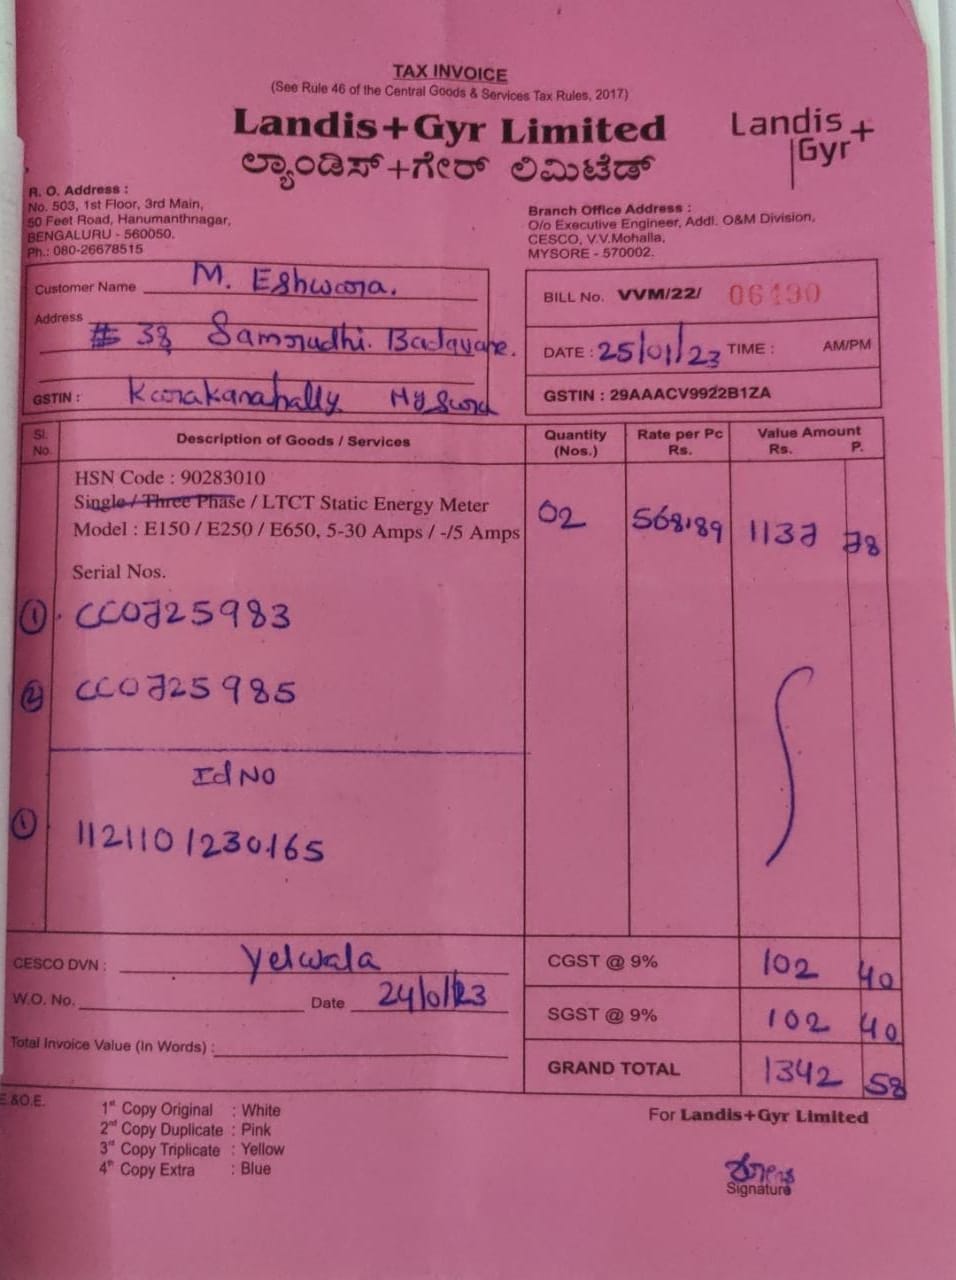 TAX INVOICE
(See Rule 46 of the Central Goods & Services Tax Rules, 2017)
Landis+Gyr Limited
ಲ್ಯಾಂಡಿಸ್+ಗೇರ್ ಲಿಮಿಟೆಡ್
Landis+
Gyr
R. O. Address :
No. 503, 1st Floor, 3rd Main,
50 Feet Road, Hanumanthnagar,
BENGALURU - 560050.
Ph.: 080-26678515
Branch Office Address :
O/o Executive Engineer, Addl. O&M Division,
CESCO, V.V.Mohalla,
MYSORE - 570002.
Customer Name M. Eshwara.
Address
# 38 Samrudhi.
GSTIN :
BILL No. VVM/22/ 06490
DATE : 25/01/23 TIME : AM/PM
GSTIN : 29AAACV9922B1ZA
Sl. No. Description of Goods / Services Quantity (Nos.) Rate per Pc Rs. Value Amount Rs. P.
HSN Code : 90283010
Single / Three Phase / LTCT Static Energy Meter
Model : E150 / E250 / E650, 5-30 Amps / -/5 Amps 02 568.89 1137 78
Serial Nos.
1 CC0725983
2 CC0725985
Id No
1 1121101230165
CESCO DVN : Yelwala
W.O. No. Date 24/01/23
Total Invoice Value (In Words) :
CGST @ 9% 102 40
SGST @ 9% 102 40
GRAND TOTAL 1342 58
E.&O.E.
1st Copy Original : White
2nd Copy Duplicate : Pink
3rd Copy Triplicate : Yellow
4th Copy Extra : Blue
For Landis+Gyr Limited
Signature